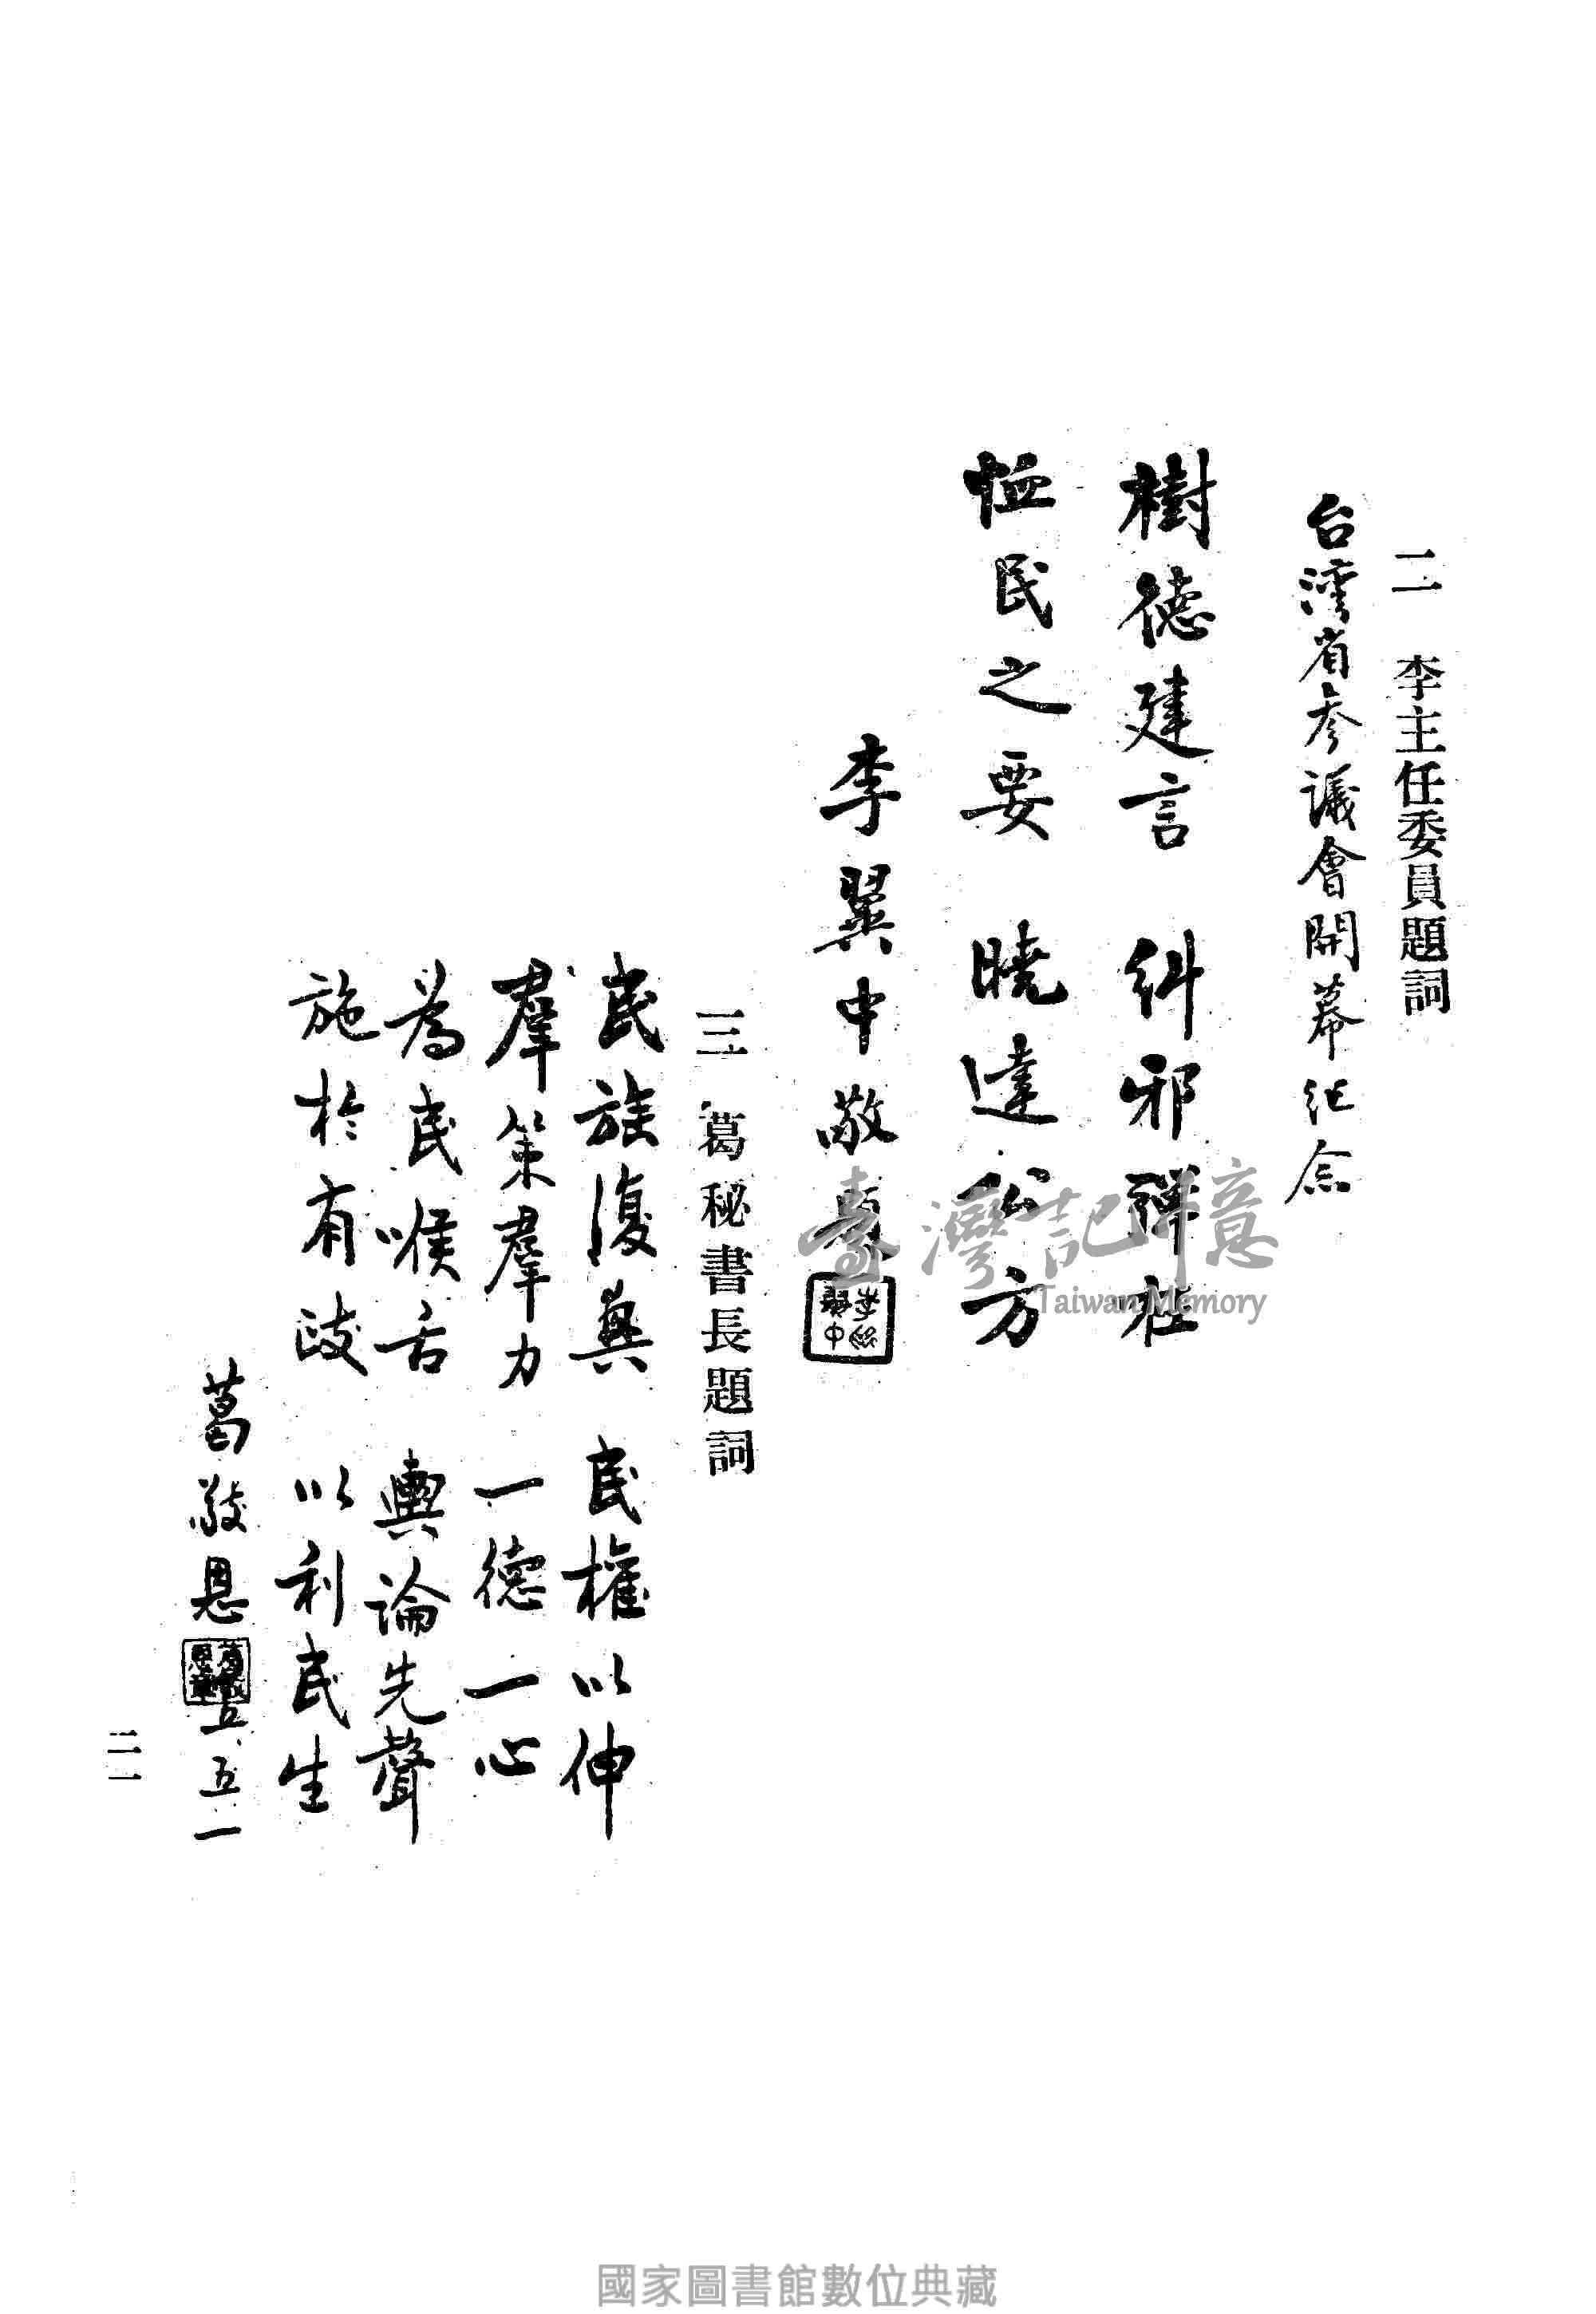 二　李主任委員題詞
台湾省参議會開幕纪念
樹德建言　糾邪彈枉
恤民之要　曉達公方
李翼中敬題
三　葛秘書長題詞
民族復興　民權以伸
羣策羣力　一德一心
為民喉舌　輿論先聲
施於有政　以利民生
葛敬恩
五、五、一
二一
臺灣記憶
Taiwan Memory
國家圖書館數位典藏